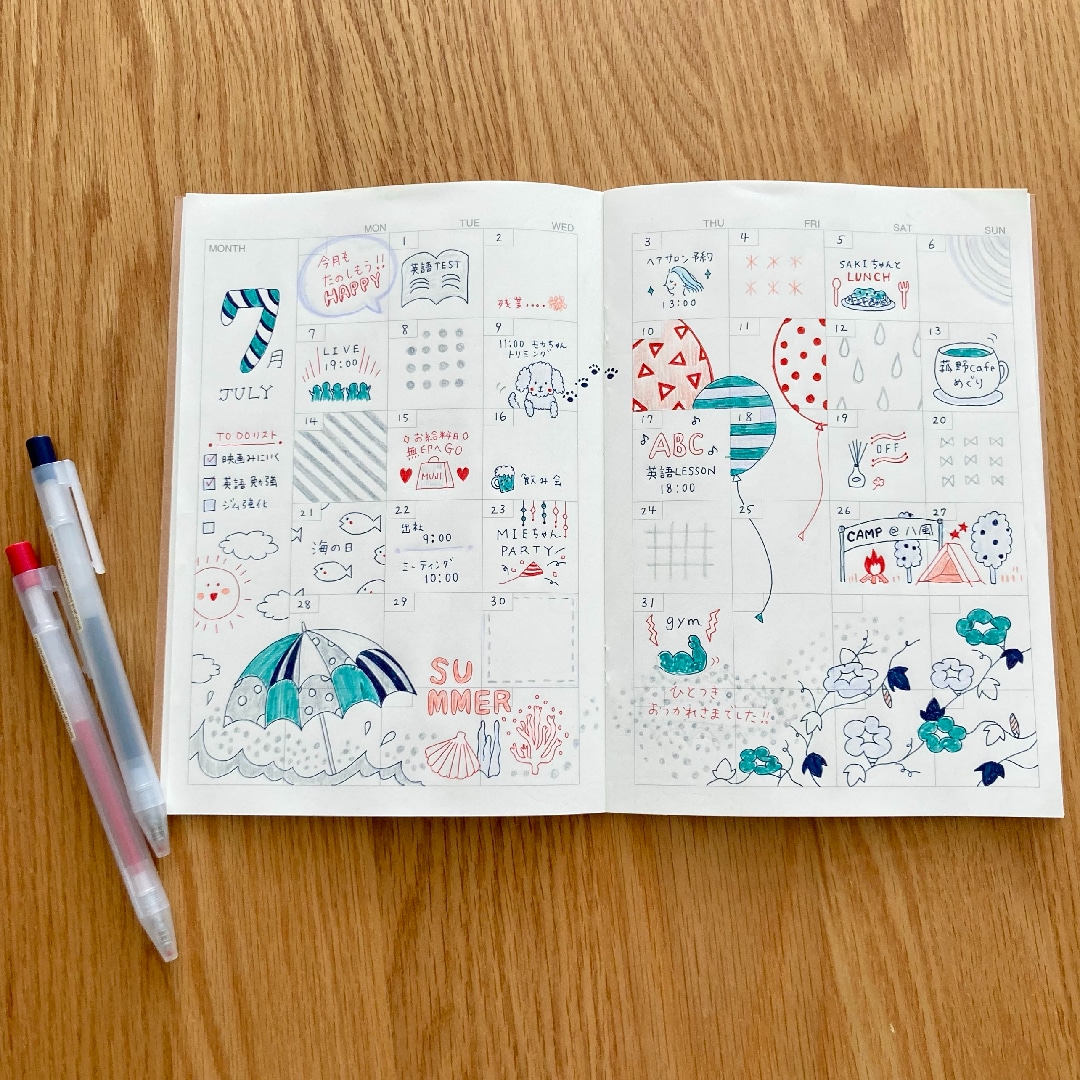 MONTH
MON
TUE
WED
THU
FRI
SAT
SUN
7月
JULY
TO DOリスト
映画みにいく
英語勉強
ジム強化
今月も
たのしもう!!
HAPPY
1
英語TEST
2
残業....
3
ヘアサロン予約
13:00
4
5
SAKIちゃんと
LUNCH
6
7
LIVE
19:00
8
9
11:00 モカちゃん
トリミング
10
11
12
13
菰野cafe
めぐり
14
15
お給料日
無印へGO
MUJI
16
飲み会
17
ABC
英語LESSON
18:00
18
19
OFF
20
21
海の日
22
出社
9:00
ミーティング
10:00
23
MIEちゃん
PARTY
24
25
26
27
CAMP @ 八風
28
29
30
SU
MMER
31
gym
ひとつき
おつかれさまでした!!